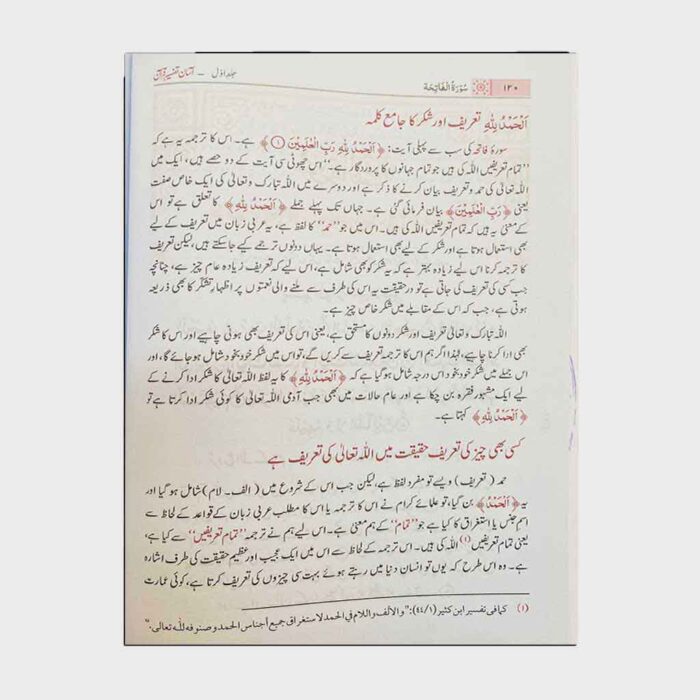 ۱۲۰ سُوْرَۃُ الْفَاتِحَۃ جلد اوّل – آسان تفسیرِ قرآن
اَلْحَمْدُ لِلّٰهِ تعریف اور شکر کا جامع کلمہ
سورۂ فاتحہ کی سب سے پہلی آیت: ﴿اَلْحَمْدُ لِلّٰهِ رَبِّ الْعٰلَمِيْنَ ۝۱﴾ ہے۔ اس کا ترجمہ یہ ہے کہ
”تمام تعریفیں اللہ کی ہیں جو تمام جہانوں کا پروردگار ہے۔“ اس چھوٹی سی آیت کے دو حصے ہیں، ایک میں
اللہ تعالیٰ کی حمد و تعریف بیان کرنے کا ذکر ہے اور دوسرے میں اللہ تبارک و تعالیٰ کی ایک خاص صفت
یعنی ﴿رَبِّ الْعٰلَمِيْنَ﴾ بیان فرمائی گئی ہے۔ جہاں تک پہلے جملے ﴿اَلْحَمْدُ لِلّٰهِ﴾ کا تعلق ہے تو اس
کے معنی یہ ہیں کہ تمام تعریفیں اللہ کی ہیں۔ اس میں جو ”حمد“ کا لفظ ہے، یہ عربی زبان میں تعریف کے لیے
بھی استعمال ہوتا ہے اور شکر کے لیے بھی استعمال ہوتا ہے۔ یہاں دونوں ترجمے کیے جاسکتے ہیں، لیکن تعریف
کا ترجمہ کرنا اس لیے زیادہ بہتر ہے کہ یہ شکر کو بھی شامل ہے، اس لیے کہ تعریف زیادہ عام چیز ہے، چنانچہ
جب کسی کی تعریف کی جاتی ہے تو درحقیقت یہ اس کی طرف سے ملنے والی نعمتوں پر اظہارِ تشکّر کا بھی ذریعہ
ہوتی ہے، جب کہ اس کے مقابلے میں شکر خاص چیز ہے۔
اللہ تبارک و تعالیٰ تعریف اور شکر دونوں کا مستحق ہے، یعنی اس کی تعریف بھی ہونی چاہیے اور اس کا شکر
بھی ادا کرنا چاہیے، لہٰذا اگر ہم اس کا ترجمہ تعریف سے کریں گے، تو اس میں شکر خود بخود شامل ہو جائے گا، اور
اس جملے میں شکر خود بخود اس درجہ شامل ہو گیا ہے کہ ﴿اَلْحَمْدُ لِلّٰهِ﴾ کا یہ لفظ اللہ تعالیٰ کا شکر ادا کرنے کے
لیے ایک مشہور فقرہ بن چکا ہے اور عام حالات میں بھی جب آدمی اللہ تعالیٰ کا کوئی شکر ادا کرتا ہے تو
﴿اَلْحَمْدُ لِلّٰهِ﴾ کہتا ہے۔
کسی بھی چیز کی تعریف حقیقت میں اللہ تعالیٰ کی تعریف ہے
حمد (تعریف) ویسے تو مفرد لفظ ہے، لیکن جب اس کے شروع میں (الف۔ لام) شامل ہو گیا اور
یہ ﴿اَلْحَمْدُ﴾ بن گیا، تو علمائے کرام نے اس کا ترجمہ یا اس کا مطلب عربی زبان کے قواعد کے لحاظ سے
اسمِ جنس یا استغراق کا کیا ہے جو ”تمام“ کے ہم معنی ہے۔ اس لیے ہم نے ترجمہ ”تمام تعریفیں“ سے کیا ہے،
یعنی تمام تعریفیں (۱) اللہ کی ہیں۔ اس ترجمہ کے لحاظ سے اس میں ایک عجیب اور عظیم حقیقت کی طرف اشارہ
ہے۔ وہ اس طرح کہ یوں تو انسان دنیا میں رہتے ہوئے بہت سی چیزوں کی تعریف کرتا ہے، کوئی عمارت
(۱) کما فی تفسیر ابن کثیر (۴۴/۱): ”والألف واللام في الحمد لاستغراق جميع أجناس الحمد وصنوفه لله تعالى.“